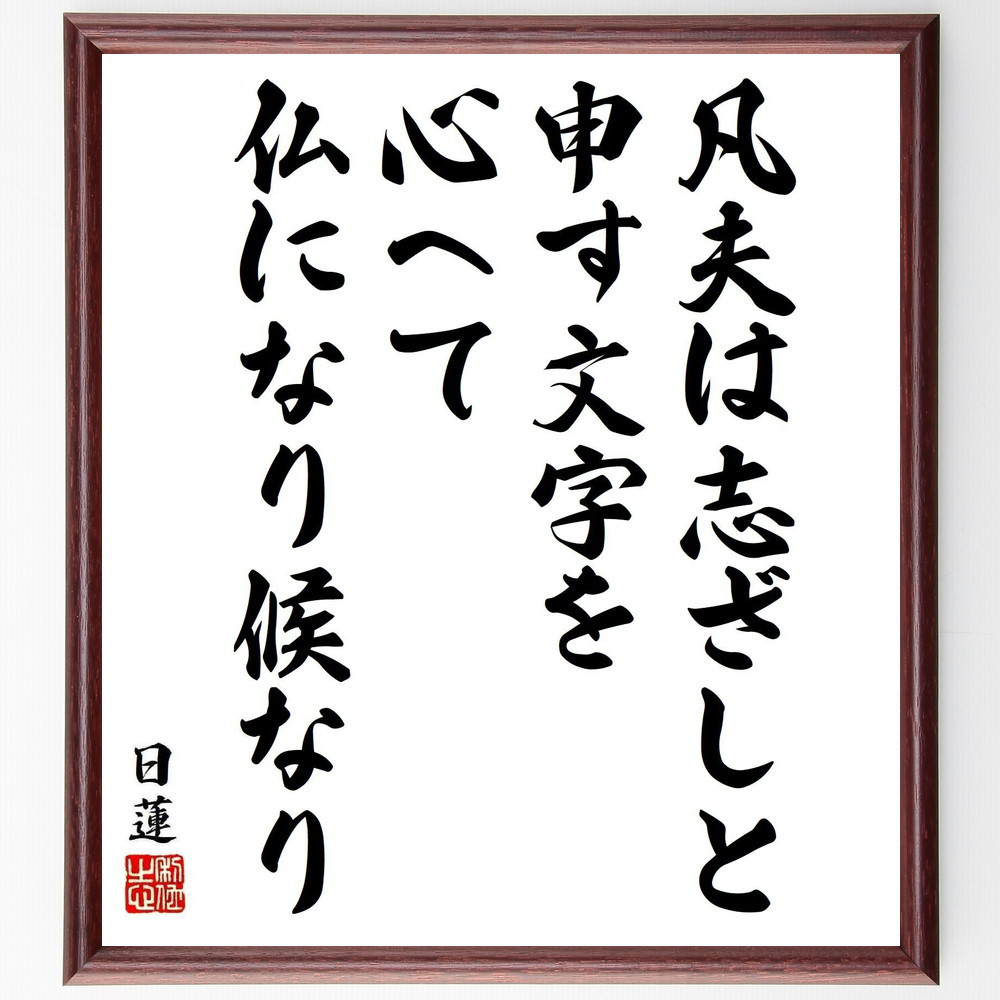 凡夫は志ざしと
申す文字を
心へて
仏になり候なり
日蓮